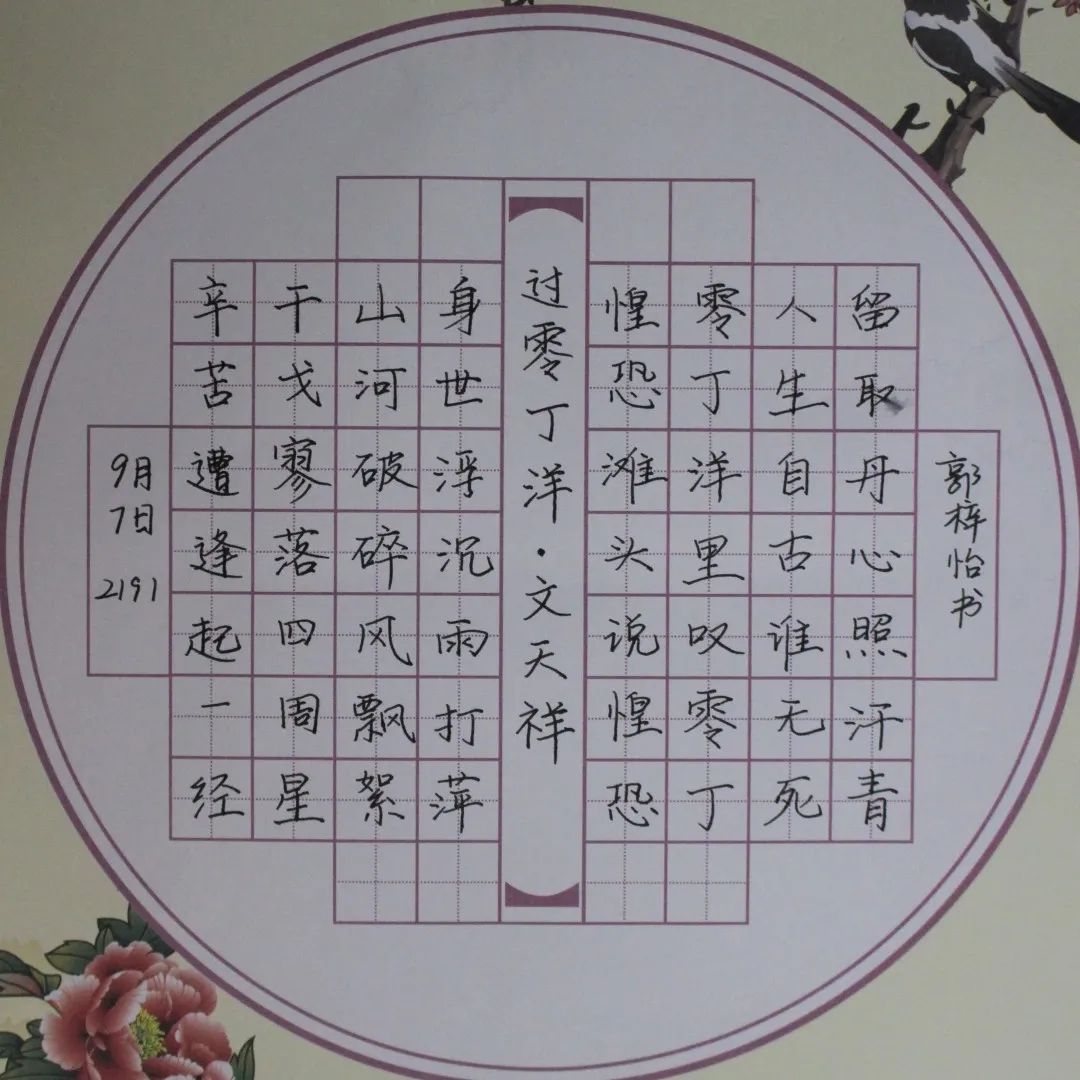 9月
7日
2191
辛苦遭逢起一经
干戈寥落四周星
山河破碎风飘絮
身世浮沉雨打萍
过零丁洋·文天祥
惶恐滩头说惶恐
零丁洋里叹零丁
人生自古谁无死
留取丹心照汗青
郭梓怡书